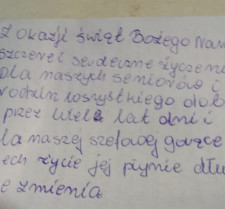 Z okazji świąt Bożego Nar
szczere i serdeczne życzeni
dla naszych seniorów i
rodzin wszystkiego dob
przez wiele lat dni i
la naszej szefowej gorące
ech życie jej płynie dłu
e zmienia